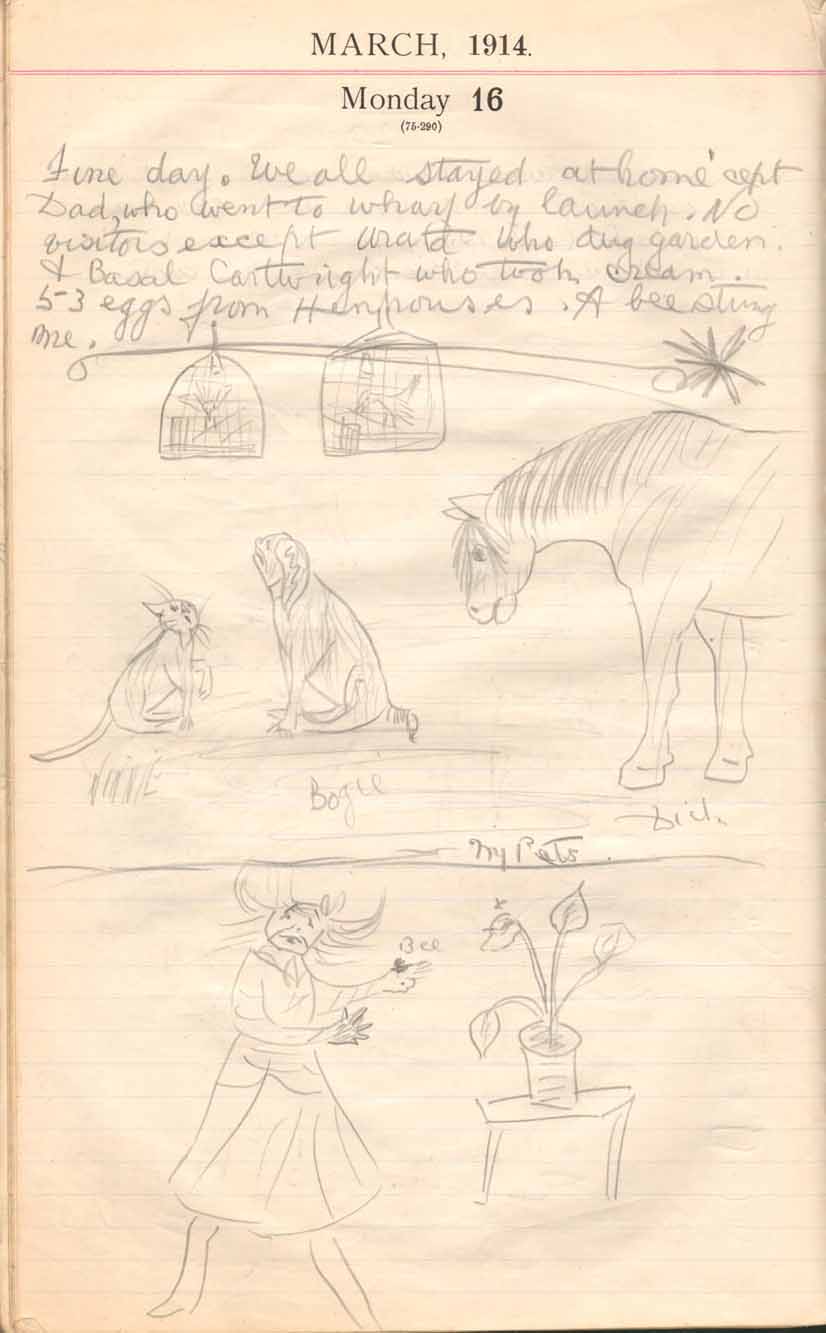 MARCH, 1914.
Monday 16
(75-290)
Fine day. We all stayed at home 'cept
Dad, who went to wharf by launch. No
visitors except Urata who dug garden.
& Basal Cartwright who took cream.
53 eggs from Henhouses. A bee stung
me.
Bogie
Dick
My Pets.
Bee